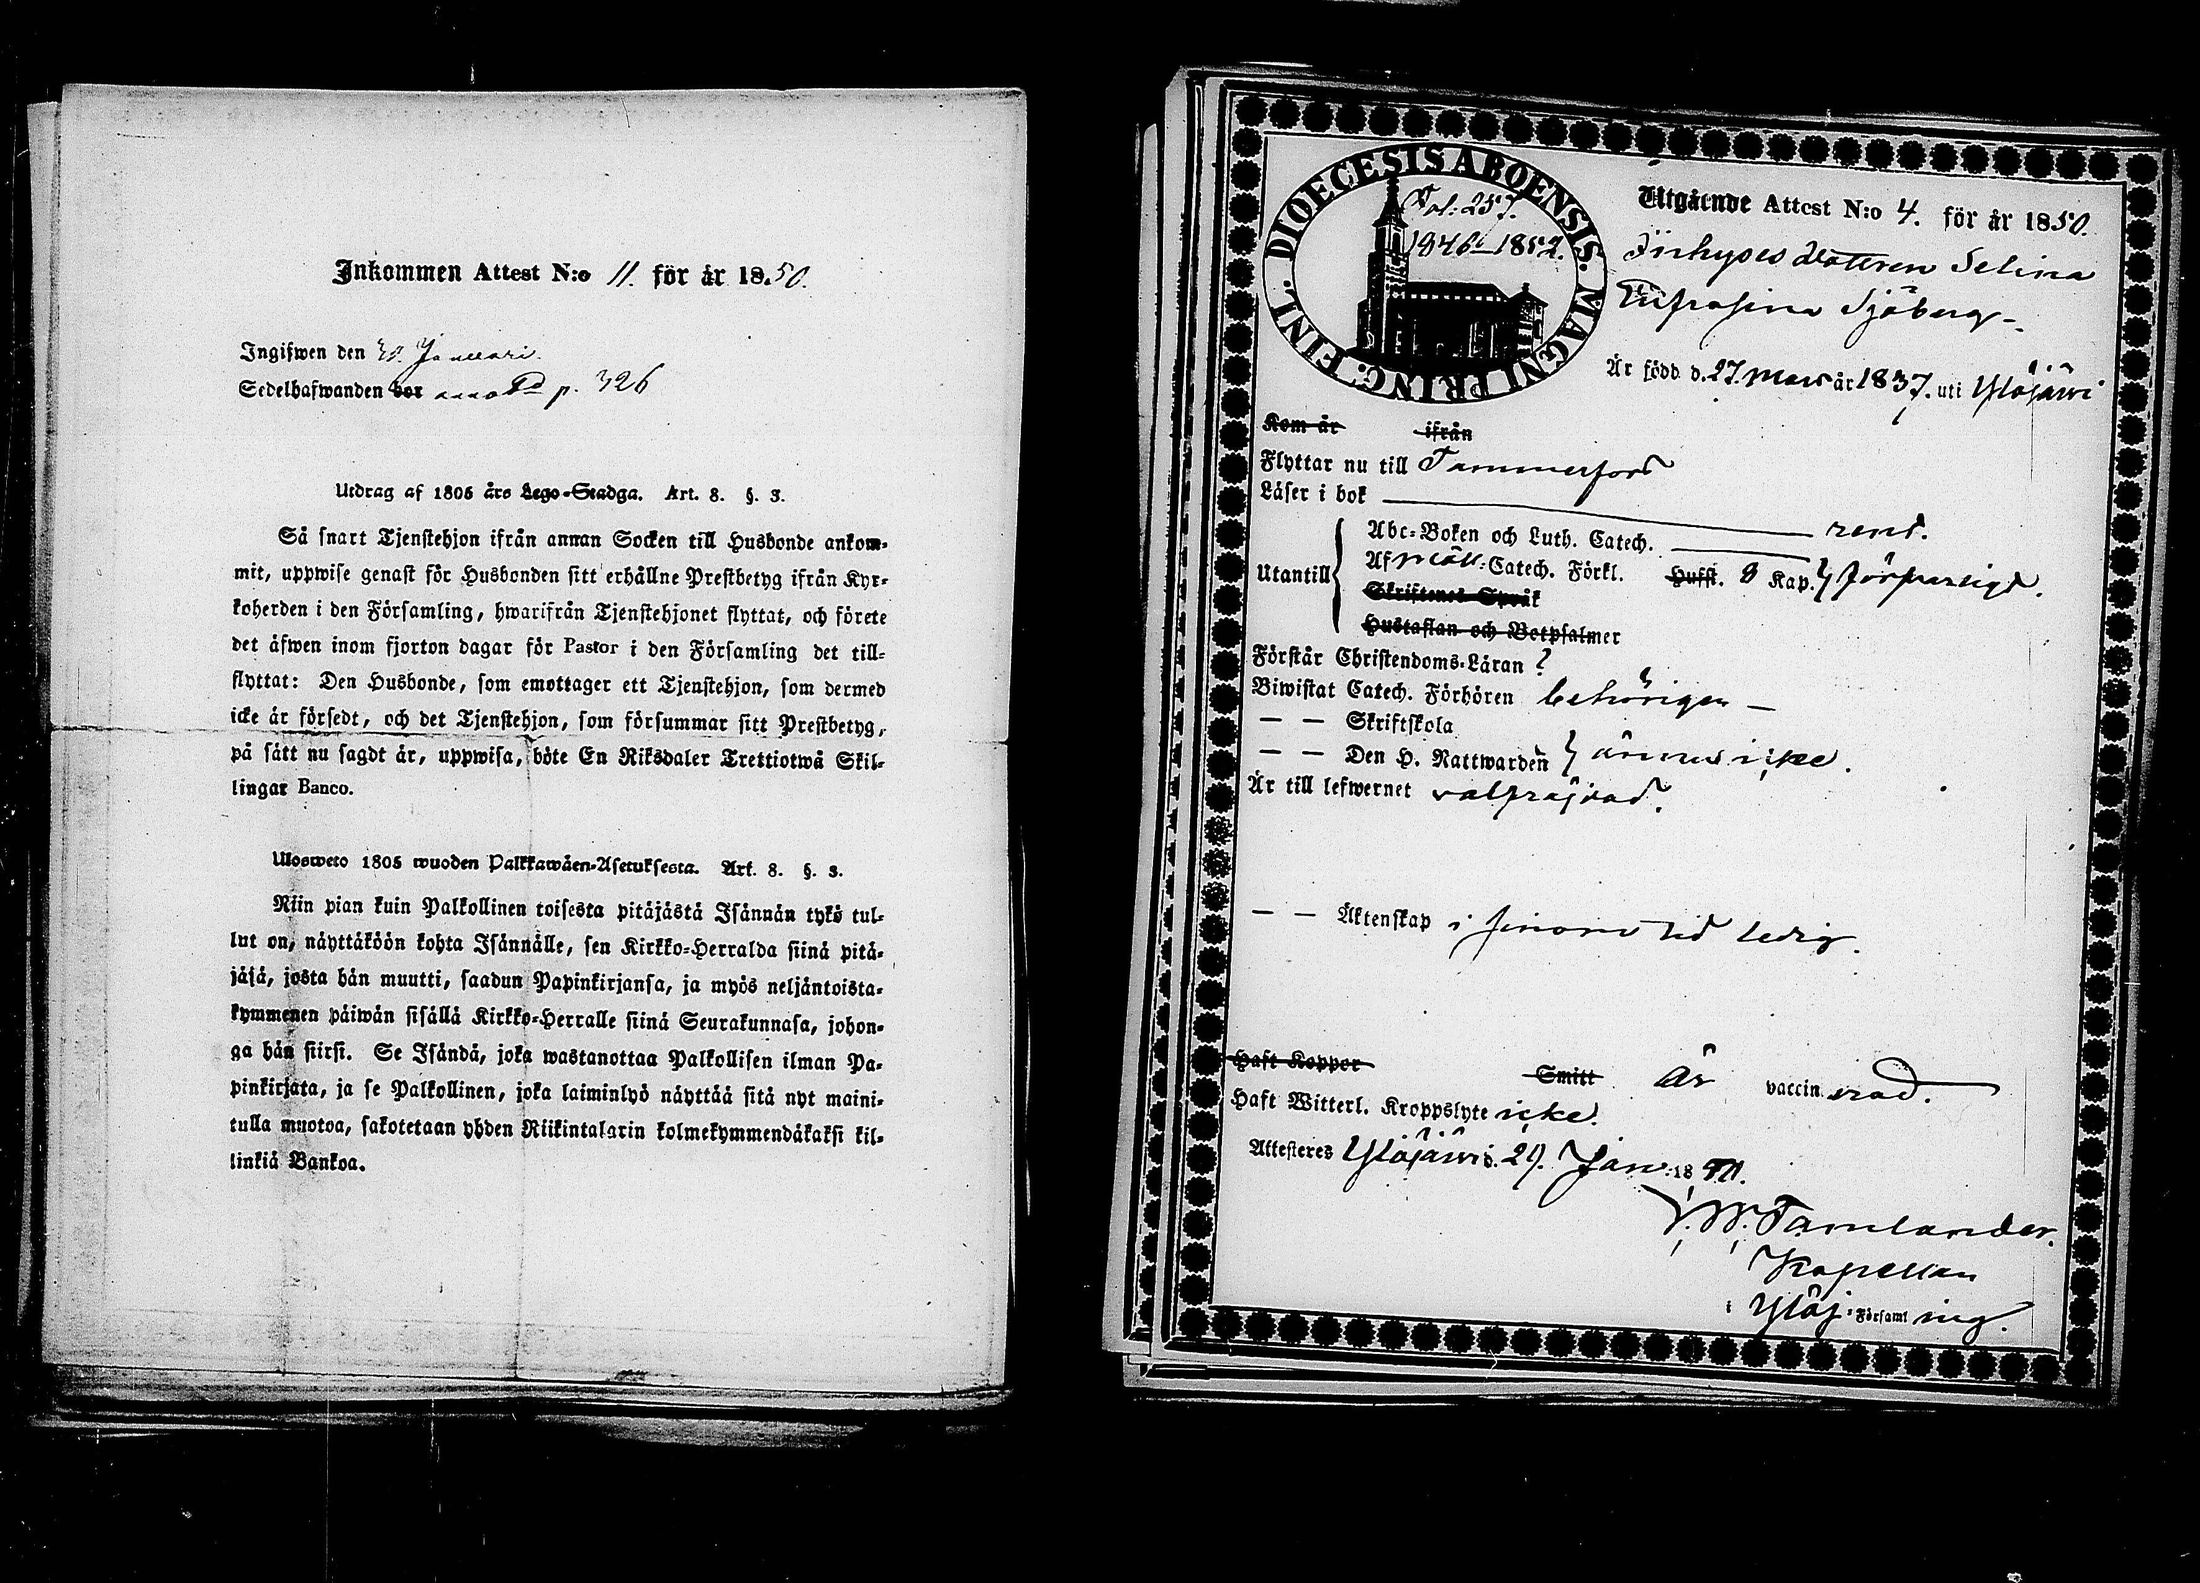 Inkommen Attest N:o 11. för år 1850.
Ingifwen den 30. Januari.
Sedelhafwanden bor p. 326
Utdrag af 1805 års Lego-Stadga. Art. 8. §. 3.
Så snart Tjenstehjon ifrån annan Socken till Husbonde ankom-
mit, uppwise genast för Husbonden sitt erhållne Prestbetyg ifrån Kyr-
koherden i den Församling, hwarifrån Tjenstehjonet flyttat, och förete
det äfwen inom fjorton dagar för Pastor i den Församling det till-
flyttat: Den Husbonde, som emottager ett Tjenstehjon, som dermed
icke är försedt, och det Tjenstehjon, som försummar sitt Prestbetyg,
på sätt nu sagdt är, uppwisa, böte En Riksdaler Trettiotwå Skil-
lingar Banco.
Ulosweto 1805 wuoden Palkkawäen-Asetuksesta. Art. 8. §. 3.
Niin pian kuin Palkollinen toisesta pitäjästä Isännän tykö tul-
lut on, näyttäköön kohta Isännälle, sen Kirkko-Herralda siinä pitä-
jäsä, josta hän muutti, saadun Papinkirjansa, ja myös neljäntoista-
kymmenen päiwän sisällä Kirkko-Herralle siinä Seurakunnasa, johon-
ga hän siirsi. Se Isändä, joka wastanottaa Palkollisen ilman Pa-
pinkirjata, ja se Palkollinen, joka laiminlyö näyttää sitä nyt maini-
tulla muotoa, sakotetaan yhden Riikintalarin kolmekymmendäkaksi kil-
linkiä Bankoa.
DIOECESIS ABOENSIS. MAGNI PRINC. FINL.
Fol: 257.
1846-1852.
Utgående Attest N:o 4. för år 1850.
Inhyses dotteren Selina
Eufrosina Sjöberg
Är född d. 27. Mars år 1837. uti Ylöjärvi
Kom år ifrån
Flyttar nu till Tammerfors
Läser i bok rent.
Utantill
Abc-Boken och Luth. Catech.
Af Möll: Catech. Förkl. Hufst. 8 Kap. försvarligt.
Skriftenes Språk
Hustaflan och Botpsalmer
Förstår Christendoms-Läran ?
Biwistat Catech. Förhören behörigen
— — Skriftskola
— — Den H. Nattwarden ännu icke.
Är till lefwernet välfräjdad.
— — Äktenskap i sinom tid ledig.
Haft Koppor Smitt är vaccinerad.
Haft Witterl. Kroppslyte icke.
Attesteres Ylöjärvi d. 29. Jan. 1850.
Tamlander.
Kapellan
i Ylöj. Församling.